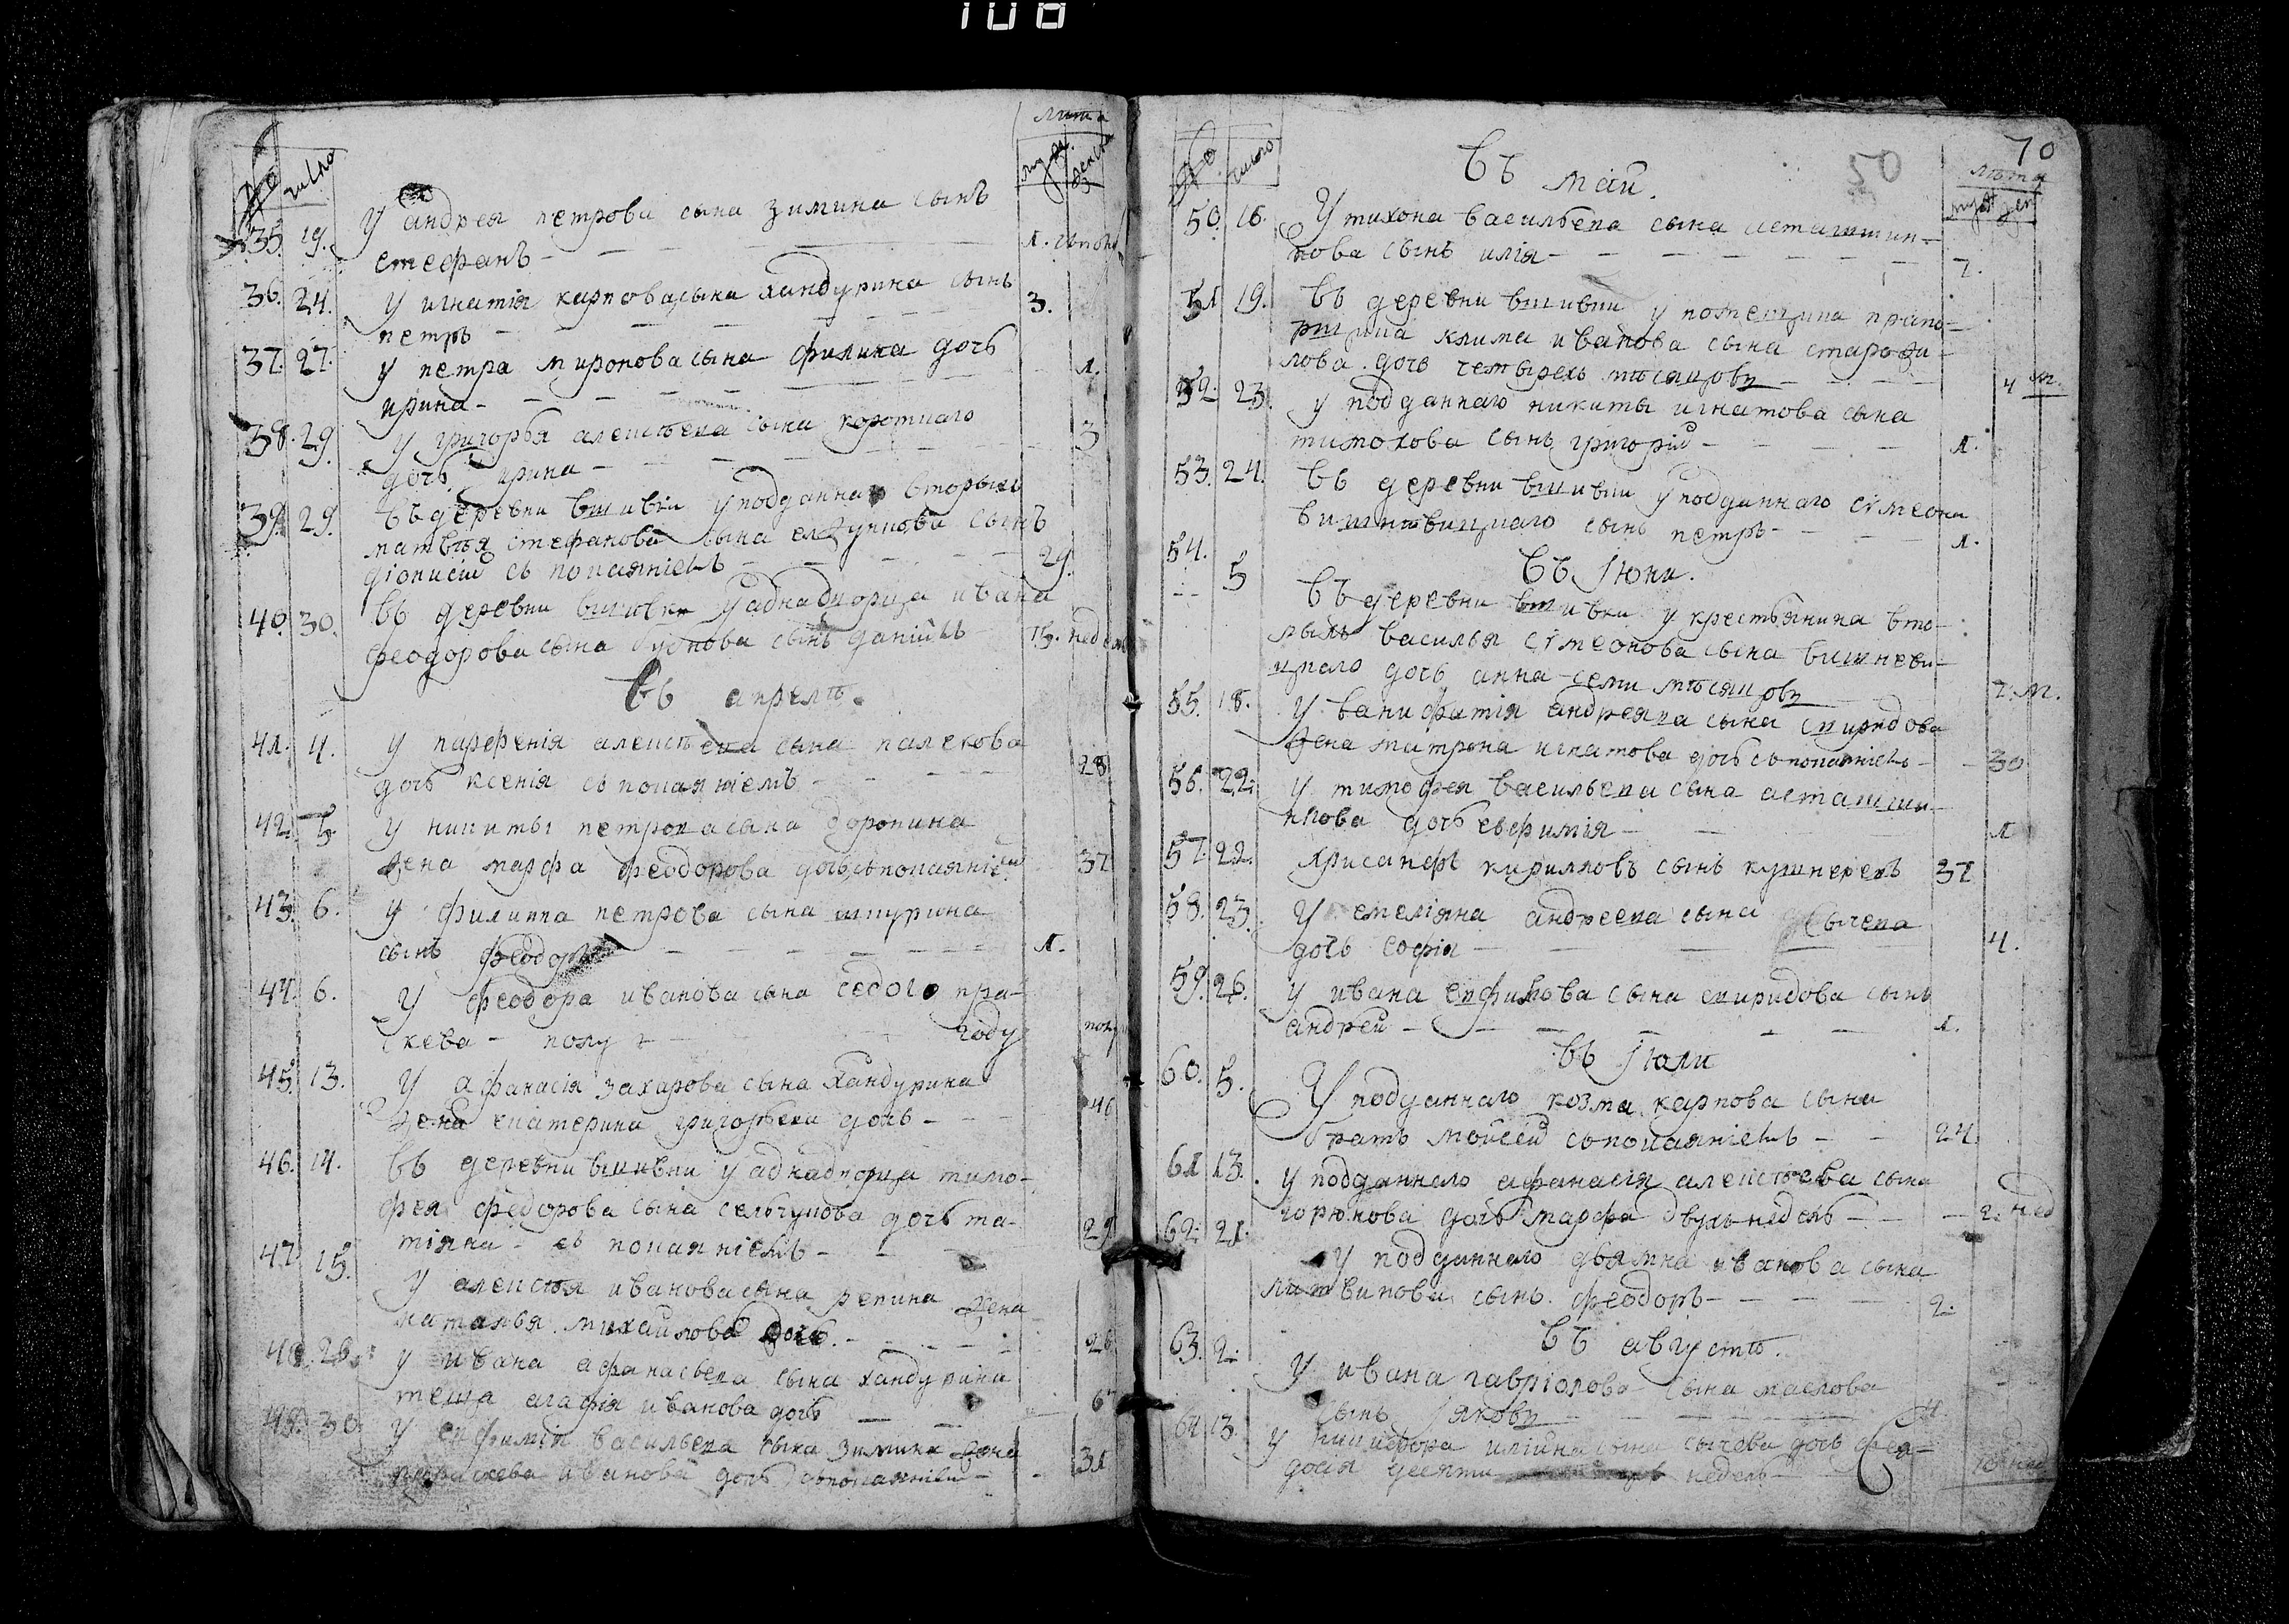 108
лѣта
№ число муж. женск
35. 19. У андрея петрова сына зимина сынъ
стефанъ — 1.
36. 24. у игнатїя карпова сына хандурина сынъ
петръ — 3.
37. 27. у петра миронова сына филина дочь
ирина — 1.
38. 29. у григорья алексѣева сына короткаго
дочь ирина — 3
39. 29. въ деревни вшивки у подданнаго вторымъ
матвѣя стефанова сына сынъ
дїонисїй съ покаянїемъ — 29.
40. 30. въ деревни вшивки у аднадворца ивана
феодорова сына сынъ данїилъ недел
въ апрелѣ.
41. 4. у парфенїя алексѣева сына палехова
дочь ксенїя съ покаянїемъ — 28
42. 5. у никиты петрова сына доронина
жена марфа феодорова дочь съ покаянїем 37
43. 6. у филиппа петрова сына шпурина
сынъ феодоръ — 1.
44. 6. У феодора иванова сына седого пра-
скева — полу году полу
45. 13. У афанасїя захарова сына хандурина
жена екатерина григорьева дочь — 40
46. 14. въ деревни вшивки у аднадворца тимо-
фея федорова сына селчукова дочь та-
тїяна — съ покаянїемъ — 29
47. 15. У алексѣя иванова сына репина жена
наталья михайлова дочь. — 26
48. 26. у ивана афанасьева сына хандурина
теща агафїя иванова дочь —
49. 30. у евфимїя васильева сына зимина жена
параскева иванова дочь съ покаянїем — 31
70
50
въ маи.
№ число лѣта
муж жен
50. 16. У тихона васильева сына асташшин-
кова сынъ илїя — 7.
51 19. въ деревни вшивки у помещика прапо-
рщика клима иванова сына старофи-
лова дочь четырехъ мѣсяцовъ — 4 м.
52. 23. у подданнаго никиты игнатова сына
тимохова сынъ григорїй — 1.
53. 24. въ деревни вшивки у подданнаго сїмеона
вишневицкаго сынъ петръ — 1.
въ Їюни.
54. 5 въ деревни вшивки у крестьянина вто-
мымъ василья сїмеонова сына вишневи-
цкаго дочь анна семи мѣсяцовъ 7. м.
55. 18. У ванифатїя андреева сына спиридова
жена матрона игнатова дочь съ покаянїемъ — 30
56. 22. у тимофея васильева сына асташши-
нкова дочь евфимїя — 1
57. 22. хрисанфъ кирилловъ сынъ кушнеревъ 37
58. 23. У емелїяна андреева сына
дочь софїя — 4.
59. 26. у ивана евфимова сына спиридова сынъ
андрей — 1.
въ Їюли
60. 5. У подданнаго козма карпова сына
братъ мойсей съ покаянїемъ — 24.
61 13. у подданнаго афанасїя алексѣева сына
горюнова дочь марфа двухъ недель — 2. нед
62. 21. у подданнаго дѣямна иванова сына
литвинова сынъ феодоръ — 2.
въ августѣ.
63. 2. У ивана гаврїолова сына маслова
сынъ Їяковъ —
64 13. у никифора илїина сына сычева дочь фео-
досїя десяти недель — 10 нед